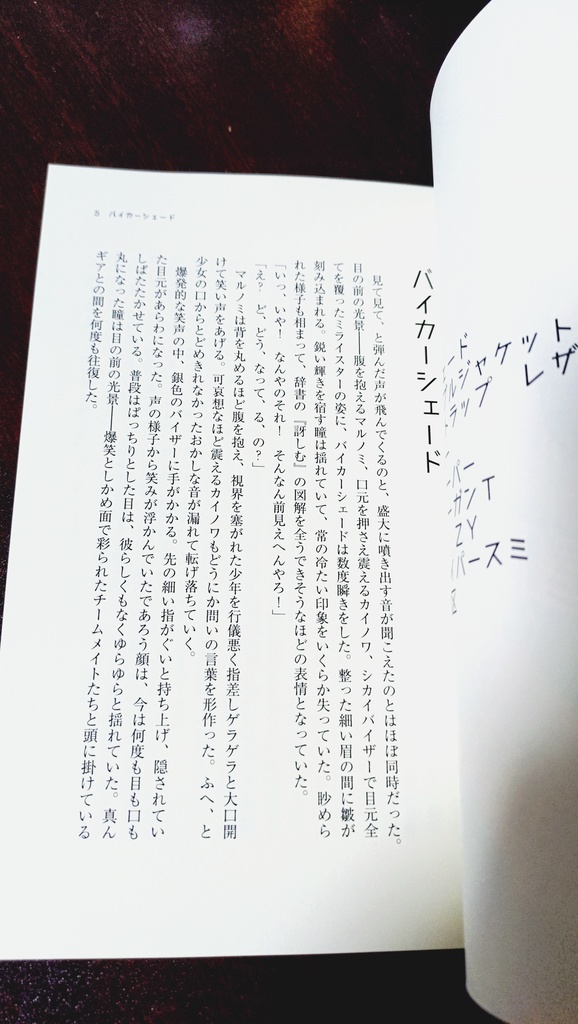 5 バイカーシェード
バイカーシェード
見て見て、と弾んだ声が飛んでくるのと、盛大に噴き出す音が聞こえたのとはほぼ同時だった。
目の前の光景――腹を抱えるマルノミ、口元を押さえ震えるカイノワ、シカイバイザーで目元全
てを覆ったミライスターの姿に、バイカーシェードは数度瞬きをした。整った細い眉の間に皺が
刻み込まれる。鋭い輝きを宿す瞳は揺れていて、常の冷たい印象をいくらか失っていた。眇めら
れた様子も相まって、辞書の『訝しむ』の図解を全うできそうなほどの表情となっていた。
「いっ、いや！　なんやのそれ！　そんなん前見えへんやろ！」
「え？　ど、どう、なって、る、の？」
マルノミは背を丸めるほど腹を抱え、視界を塞がれた少年を行儀悪く指差しゲラゲラと大口開
けて笑い声をあげる。可哀想なほど震えるカイノワもどうにか問いの言葉を形作った。ふへ、と
少女の口からとどめきれなかったおかしな音が漏れて転げ落ちていく。
爆発的な笑声の中、銀色のバイザーに手がかかる。先の細い指がぐいと持ち上げ、隠されてい
た目元があらわになった。声の様子から笑みが浮かんでいたであろう顔は、今は何度も目も口も
しばたたかせている。普段はぱっちりとした目は、彼らしくもなくゆらゆらと揺れていた。真ん
丸になった瞳は目の前の光景――爆笑としかめ面で彩られたチームメイトたちと頭に掛けている
ギアとの間を何度も往復した。
ト
ザ
レ
ード
ルジャケット
トラップ
パー
ーガンT
ZY
パースミ